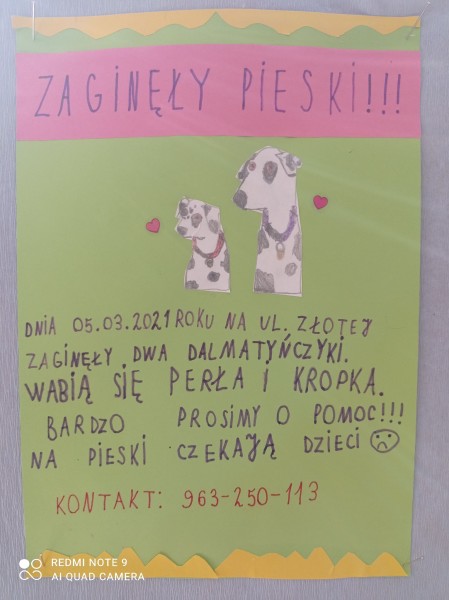 ZAGINĘŁY PIESKI!!!
DNIA 05.03.2021 ROKU NA UL. ZŁOTEJ
ZAGINĘŁY DWA DALMATYŃCZYKI.
WABIĄ SIĘ PERŁA I KROPKA.
BARDZO PROSIMY O POMOC!!!
NA PIESKI CZEKAJĄ DZIECI
KONTAKT: 963-250-113
REDMI NOTE 9
AI QUAD CAMERA